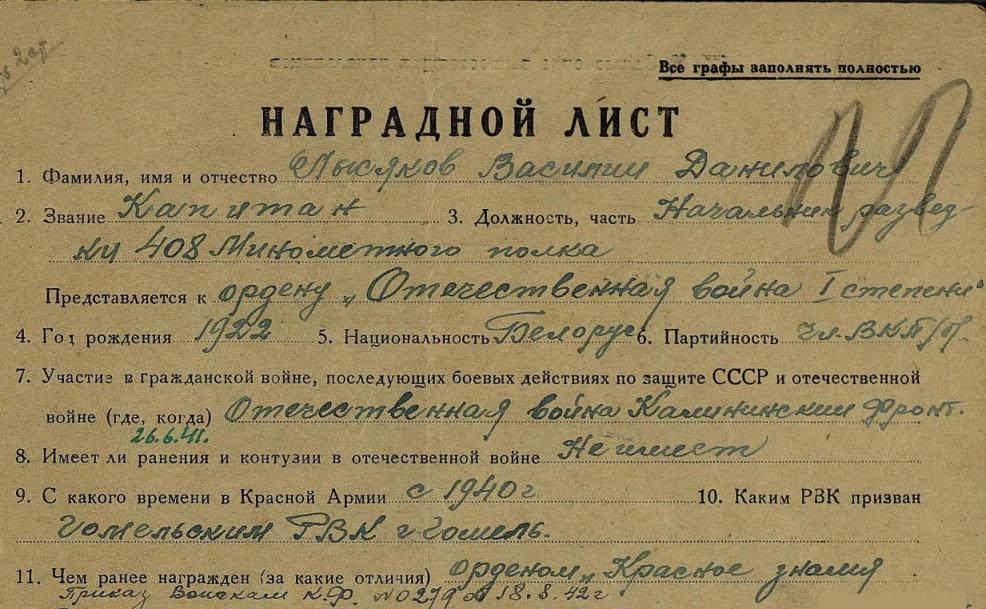 2 стр
Все графы заполнять полностью
НАГРАДНОЙ ЛИСТ
1. Фамилия, имя и отчество Лысяков Василий Данилович
2. Звание Капитан 3. Должность, часть Начальник развед-
ки 408 Минометного полка
Представляется к ордену „Отечественная война I степени"
4. Год рождения 1922 5. Национальность Белорус 6. Партийность чл. ВКП/б/.
7. Участие в гражданской войне, последующих боевых действиях по защите СССР и отечественной
войне (где, когда) Отечественная война Калининский фронт.
26.6.41.
8. Имеет ли ранения и контузии в отечественной войне Не имеет
9. С какого времени в Красной Армии с 1940 г 10. Каким РВК призван
Гомельским РВК г. Гомель.
11. Чем ранее награжден (за какие отличия) орденом „Красное знамя
Приказ Войскам К.Ф. № 0279 от 18.8.42 г